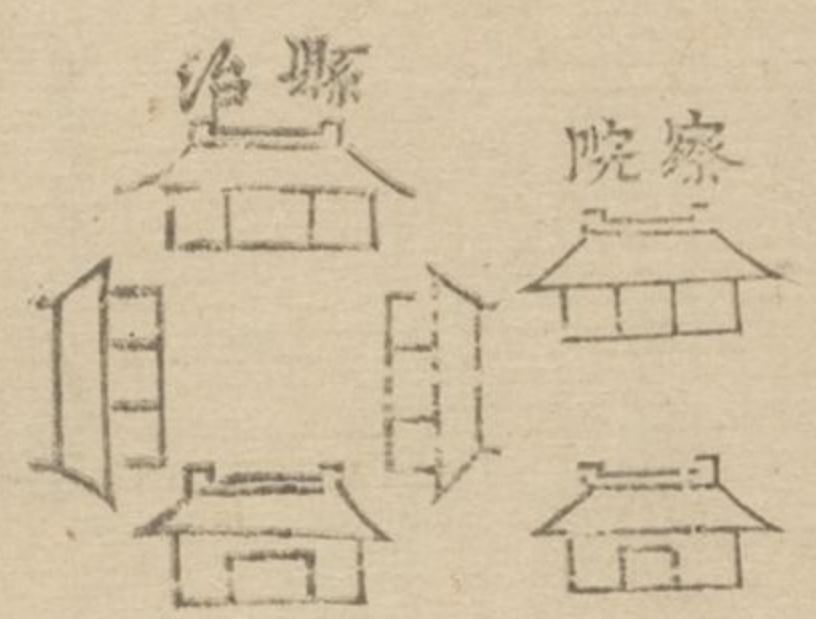 縣治
察院